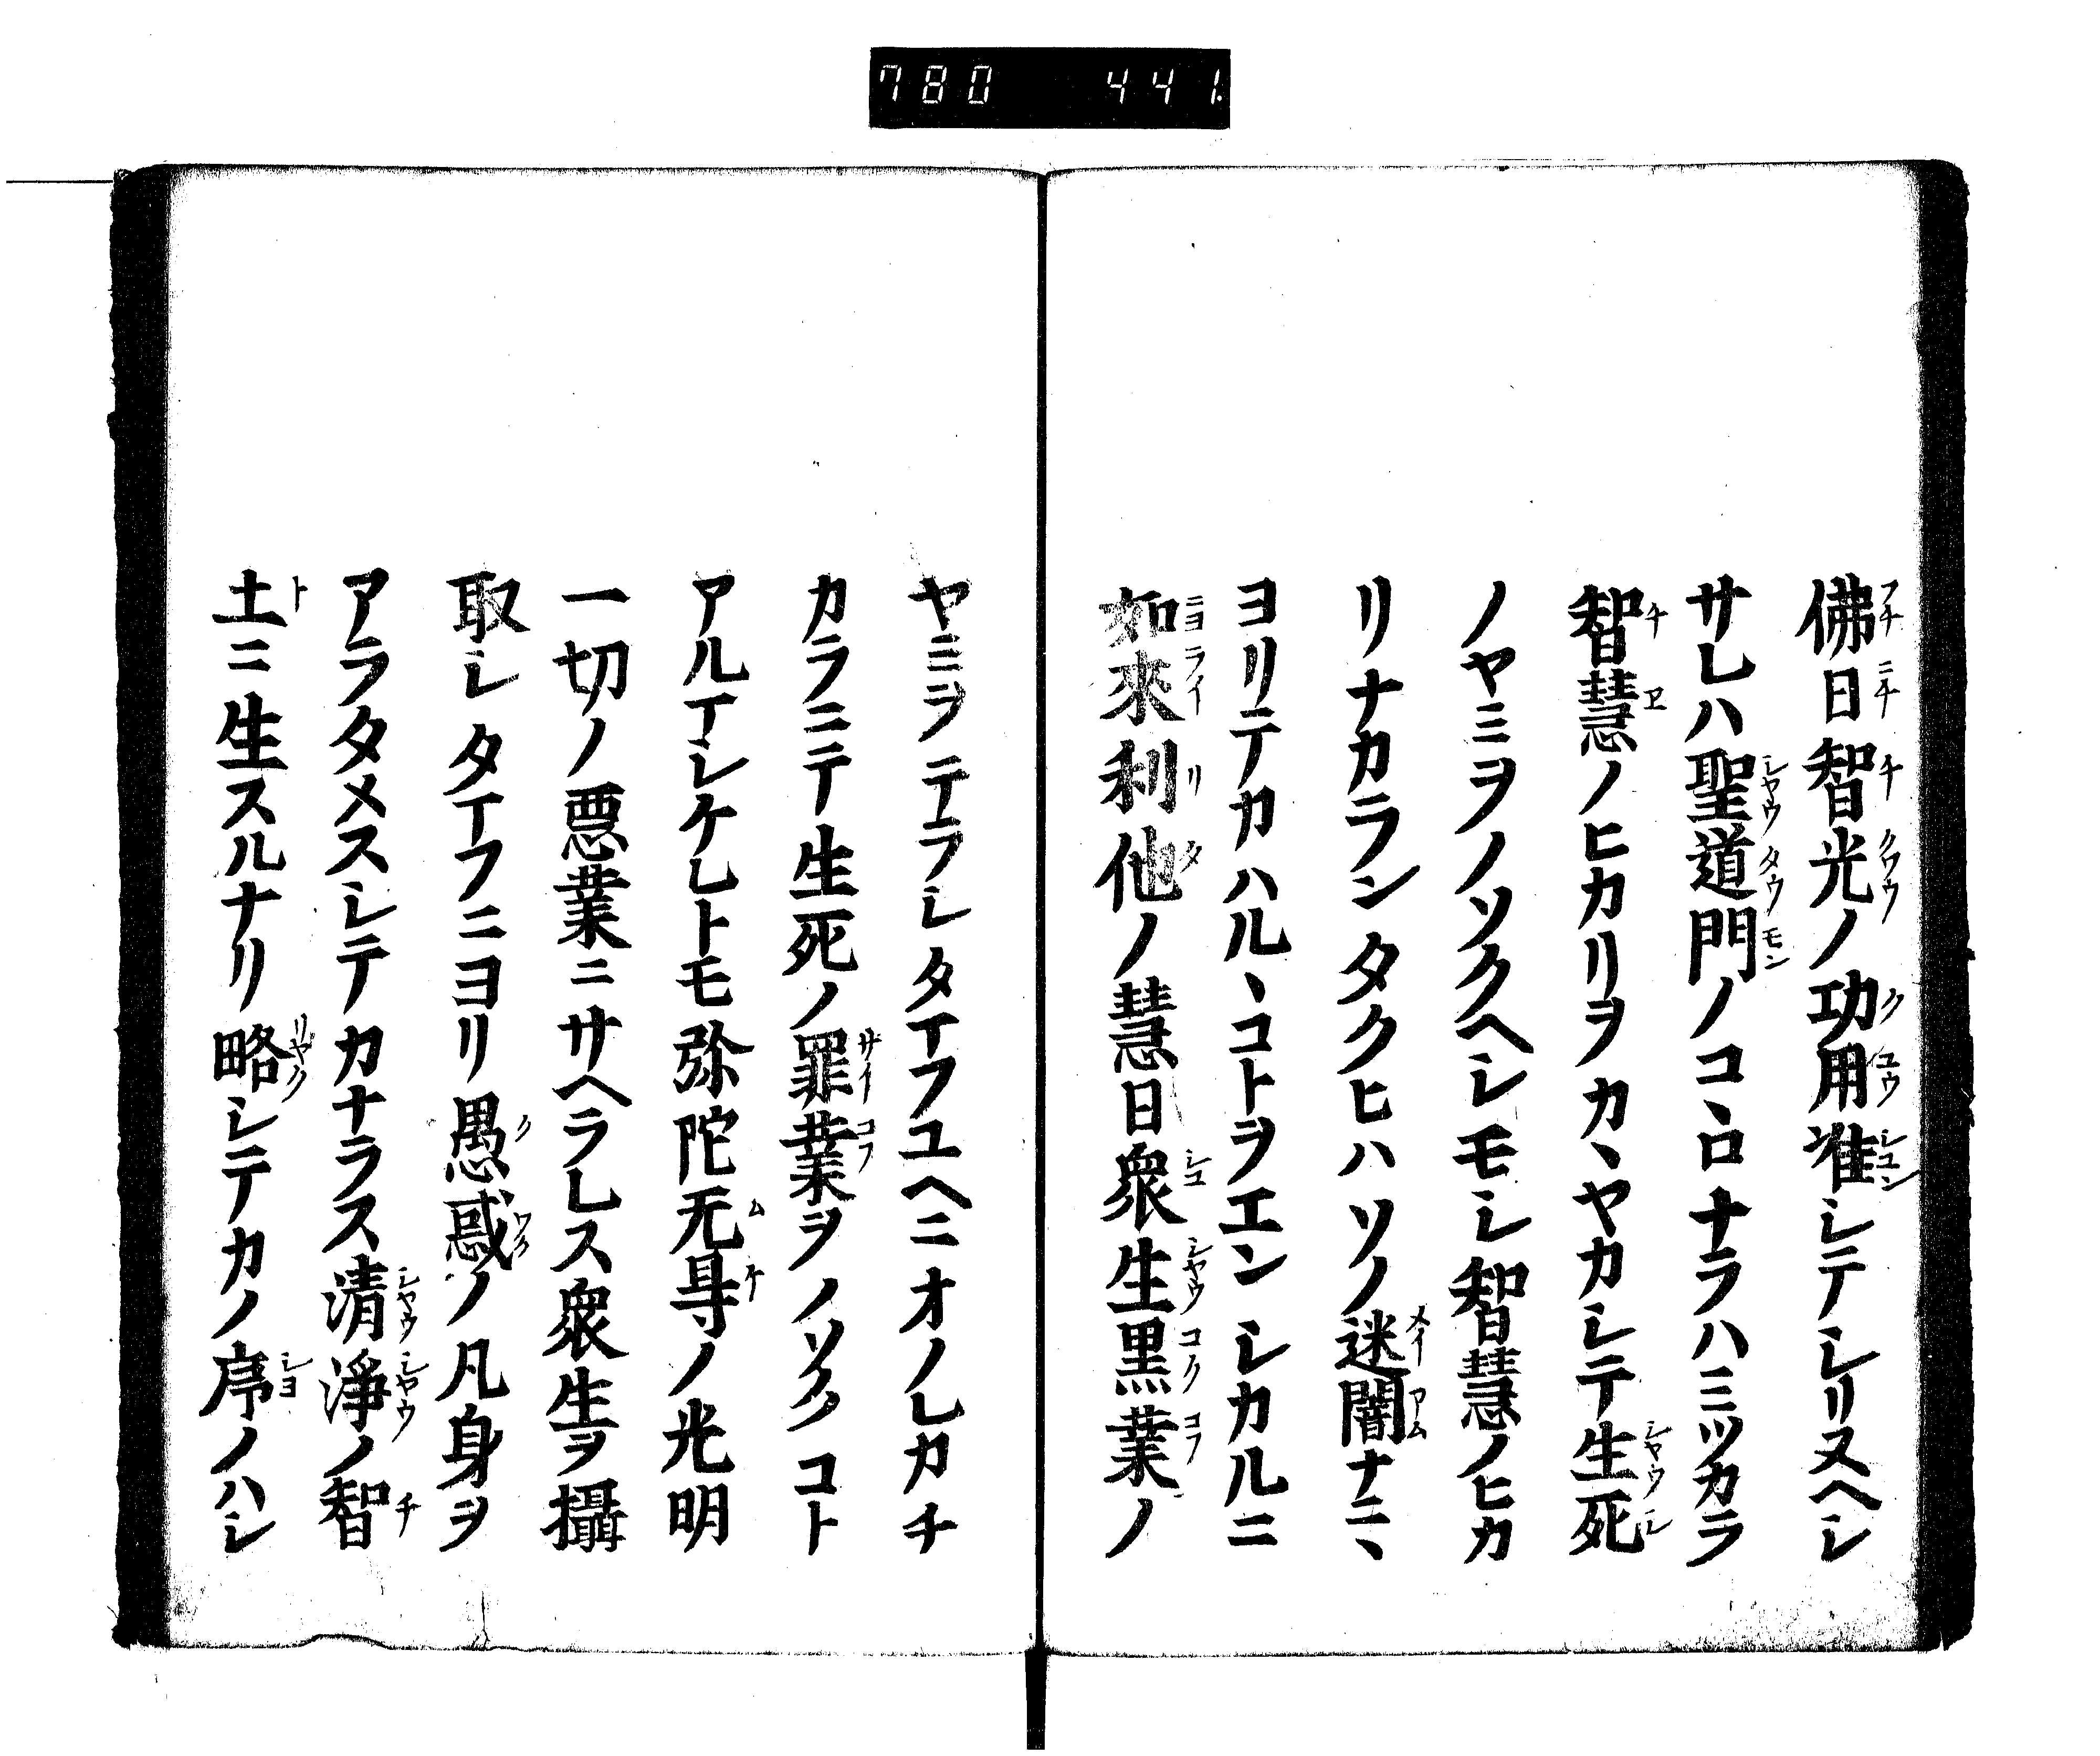 780 441.
佛日智光ノ功用准シテシリヌヘシ
サレハ聖道門ノコヽロナラハミツカラ
智慧ノヒカリヲカヽヤカシテ生死
ノヤミヲノソクヘシモシ智慧ノヒカ
リナカランタクヒハソノ迷闇ナニヽ
ヨリテカハルヽコトヲエンシカルニ
如來利他ノ慧日衆生黒業ノ
ヤミヲテラシタマフユヘニオノレカチ
カラニテ生死ノ罪業ヲノソクコト
アルマシケレトモ弥陀无㝵ノ光明
一切ノ悪業ニサヘラレス衆生ヲ攝
取シタマフニヨリ愚惑ノ凡身ヲ
アラタメスシテカナラス清淨ノ智
土ニ生スルナリ略シテカノ序ノハシ